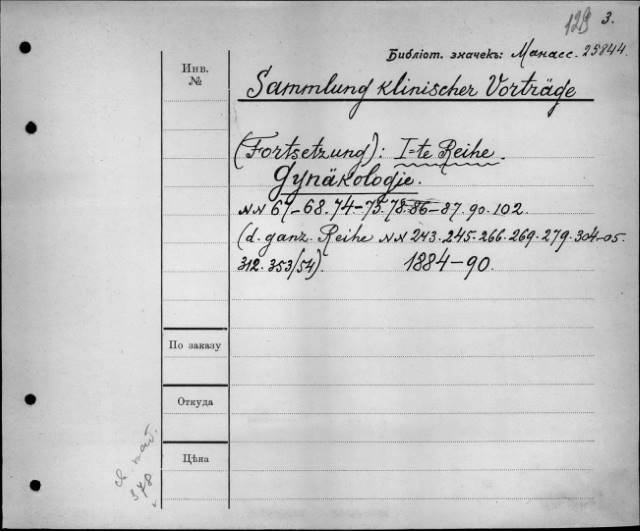 129 3.
Библіот. значекъ: Манасс. 25844.
Инв.
№
Sammlung klinischer Vorträge
(Fortsetzung): I-te Reihe.
Gynäkologie.
NN 67-68. 74-75. 78. 86-87. 90. 102.
(d. ganz. Reihe NN 243. 245. 266. 269. 279. 304-05.
312. 353/54). 1884-90.
По заказу
Откуда
Цѣна
378